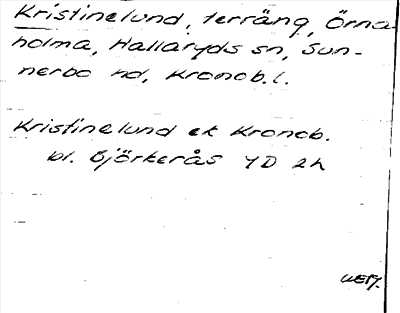 Kristinelund, terräng, Örna
holma, Hallaryds sn, Sun-
nerbo hd, Kronob.l.
Kristinelund ek Kronob.
bl. Björkerås 4D 2h